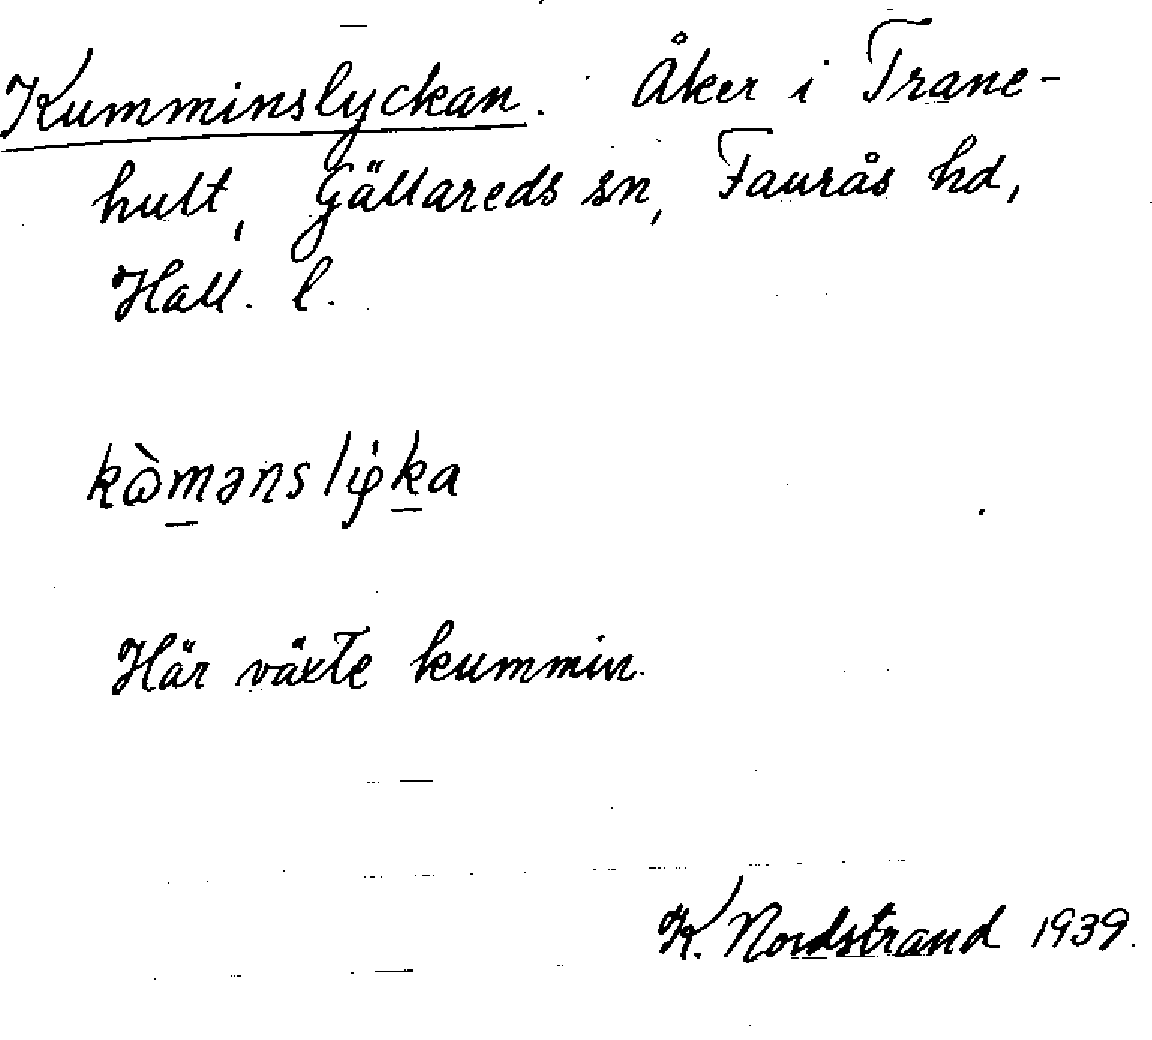 Kumminslyckan. Åker i Trane-
hult, Gällareds sn, Faurås hd,
Hall. l.
kὼmənslyka
Här växte kummin.
K. Nordstrand 1939.